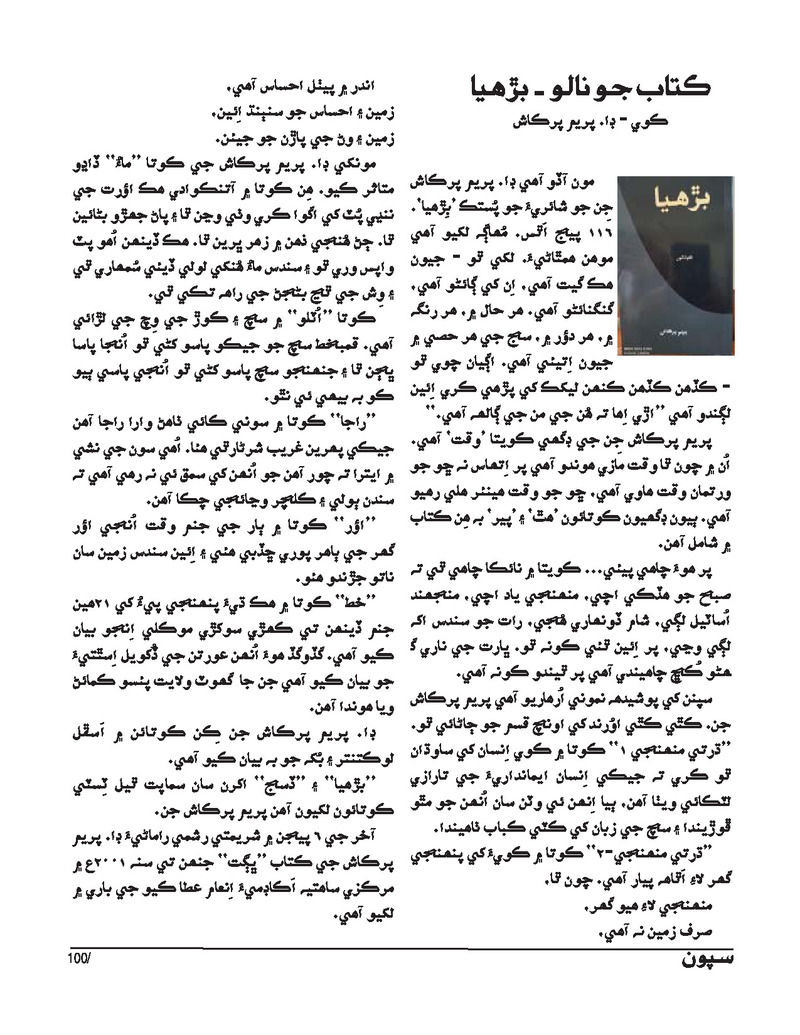 ڪتاب جو نالو - بڙهيا
ڪوي - ڊا. پريم پرڪاش
بڙهيا
مون آڏو آهي ڊا. پريم پرڪاش
جن جو شائريءَ جو پُستڪ ’بڙهيا‘.
١١٦ پيج اٿس. مُهاڳ لکيو آهي
موهن همٿاڻيءَ. لکي ٿو - جيون
هڪ گيت آهي، اِن کي ڳائڻو آهي،
گنگنائڻو آهي. هر حال ۾، هر رنگ
۾، هر دؤر ۾، سج جي هر حصي ۾
جيون اِتيئي آهي. اڳيان چوي ٿو
- ڪڏهن ڪڏهن ڪنهن ليکڪ کي پڙهي ڪري اِئين
لڳندو آهي ”اڙي اِها ته هُن جي من جي ڳالهه آهي.“
پريم پرڪاش جن جي ڊگهي ڪويتا ’وقت‘ آهي.
اُن ۾ چون ٿا وقت ماضي هوندو آهي پر اِتهاس نہ ڇو جو
ورتمان وقت هاوي آهي، ڇو جو وقت هينئر هلي رهيو
آهي. ٻيون ڊگهيون ڪوتائون ’هٿ‘ ۽ ’پير‘ بہ هِن ڪتاب
۾ شامل آهن.
پر هوءَ چاهي پيئي... ڪويتا ۾ نائڪا چاهي ٿي تہ
صبح جو هڏڪي اچي، منهنجي ياد اچي، منجهند
اُساٽيل لڳي، شام ڏونهاري هُجي، رات جو سندس اک
لڳي وڃي، پر اِئين ٿئي ڪونہ ٿو. ڀارت جي ناري گ
هڻو ڪُڇ چاهيندي آهي پر ٿيندو ڪونہ آهي.
سپنن کي پوشيدهہ نموني اُڀاريو آهي پريم پرڪاش
جن. ڪٿي ڪٿي اوُرند کي اوُنچ قسم جو ڄاڻائي ٿو.
”ڌرتي منهنجي ١“ ڪوتا ۾ ڪوي اِنسان کي ساوڌان
ٿو ڪري تہ جيڪي اِنسان ايمانداريءَ جي تارازي
لٽڪائي ويٺا آهن، ٻيا اِنهن ئي وٽن سان اُنهن جو مٿو
ڦوڙيندا ۽ سچ جي زبان کي ڪٽي ڪباب ٺاهيندا.
”ڌرتي منهنجي-٢“ ڪوتا ۾ ڪويءَ کي پنهنجي
گهر لاءِ اَٿاهہ پيار آهي. چون ٿا،
منهنجي لاءِ هيو گهر،
صرف زمين نہ آهي،
اندر ۾ پيٺل احساس آهي،
زمين ۽ احساس جو سنٻنڌ اِئين،
زمين ۽ وڻ جي پاڙن جو جيئن.
مونکي ڊا. پريم پرڪاش جي ڪوتا ”ماءُ“ ڏاڍو
متاثر ڪيو. هِن ڪوتا ۾ آتنڪوادي هڪ اؤرت جي
ننڍي پُٽ کي اگوا ڪري وٺي وڃن ٿا ۽ پاڻ جهڙو بڻائين
ٿا. ڄڻ هُنجي ذهن ۾ زهر ڀرين ٿا. هڪ ڏينهن اُهو پٽ
واپس وري ٿو ۽ سندس ماءُ هُنکي لولي ڏيئي سُمهاري ٿي
۽ وِش جي ٿڃ بڻجڻ جي راهہ تڪي ٿي.
ڪوتا ”اُٽلو“ ۾ سچ ۽ ڪوڙ جي وچ جي لڙائي
آهي. ڪمبخط سچ جو جيڪو پاسو کڻي ٿو اُنجا پاسا
ڀڃن ٿا ۽ جنهنجو سچ پاسو کڻي ٿو اُنجي پاسي ٻيو
ڪو بہ بيهي ئي نٿو.
”راجا“ ڪوتا ۾ سوني ڪائي ٺاهڻ وارا راجا آهن
جيڪي پهرين غريب شرڻارٿي هئا. اُهي سون جي نشي
۾ ايترا تہ چور آهن جو اُنهن کي سمڪ ئي نہ رهي آهي تہ
سندن ٻولي ۽ ڪلچر وڃائجي چڪا آهن.
”اؤر“ ڪوتا ۾ ٻار جي جنم وقت اُنجي اؤر
گهر جي ٻاهر پوري ڇڏبي هئي ۽ اِئين سندس زمين سان
ناتو جڙندو هئو.
”خط“ ڪوتا ۾ هڪ ڌيءَ پنهنجي پيءُ کي ٢١هين
جنم ڏينهن تي ڪهڙي سوکڙي موڪلي اِنجو بيان
ڪيو آهي. گڏوگڏ هوءَ اُنهن عورتن جي ڏُکويل اِستٿيءَ
جو بيان ڪيو آهي جن جا گهوٽ ولايت پئسو ڪمائڻ
ويا هوندا آهن.
ڊا. پريم پرڪاش جن ڪِن ڪوتائن ۾ اَسڦل
لوڪتنتر ۽ بُک جو بہ بيان ڪيو آهي.
”بڙهيا“ ۽ ”ڏسڃ“ اکرن سان سماپت ٿيل ٽِستي
ڪوتائون لکيون آهن پريم پرڪاش جن.
آخر جي ٦ پيجن ۾ شريمتي رشمي راماڻيءَ ڊا. پريم
پرڪاش جي ڪتاب ”ڀڳت“ جنهن تي سنہ ٢٠٠١ع ۾
مرڪزي ساهتيہ اَڪادميءَ اِنعام عطا ڪيو جي باري ۾
لکيو آهي.
سپون
100/